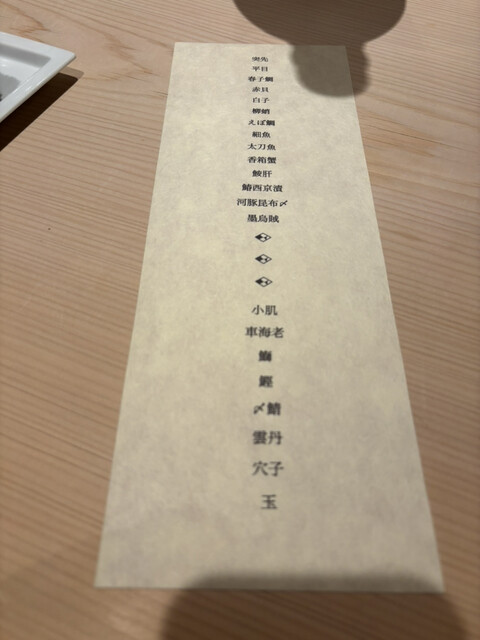 突先
平目
春子鯛
赤貝
白子
柳蛸
えぼ鯛
細魚
太刀魚
香箱蟹
鮟肝
鰆西京漬
河豚昆布〆
墨烏賊
小肌
車海老
鰤
鰹
〆鯖
雲丹
穴子
玉